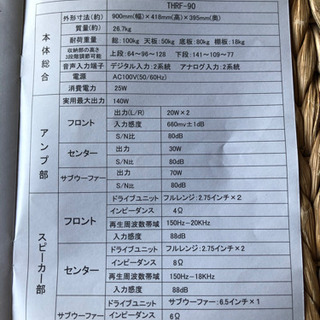 THRF-90
本体総合
外形寸法(約) 900mm(幅)×418mm(高)×395mm(奥)
質量(約) 26.7kg
耐荷重量 総:100kg 天板:50kg 底板:80kg 棚板:18kg
収納部の高さ 3段階調節可能 上段:64〜96〜128 下段:141〜109〜77
音声入力端子 デジタル入力:2系統 アナログ入力:2系統
電源 AC100V(50/60Hz)
消費電力 25W
実用最大出力 140W
アンプ部
フロント 出力(L/R) 20W×2
入力感度 660mv±1dB
S/N比 80dB
センター 出力 30W
S/N比 80dB
サブウーファー 出力 70W
S/N比 80dB
スピーカー部
フロント ドライブユニット フルレンジ:2.75インチ×2
インピーダンス 4Ω
再生周波数帯域 150Hz-20KHz
入力感度 88dB
センター ドライブユニット フルレンジ:2.75インチ×2
インピーダンス 8Ω
再生周波数帯域 150Hz-18KHz
入力感度 88dB
サブウーファー ドライブユニット サブウーファー:6.5インチ×1
インピーダンス 6Ω